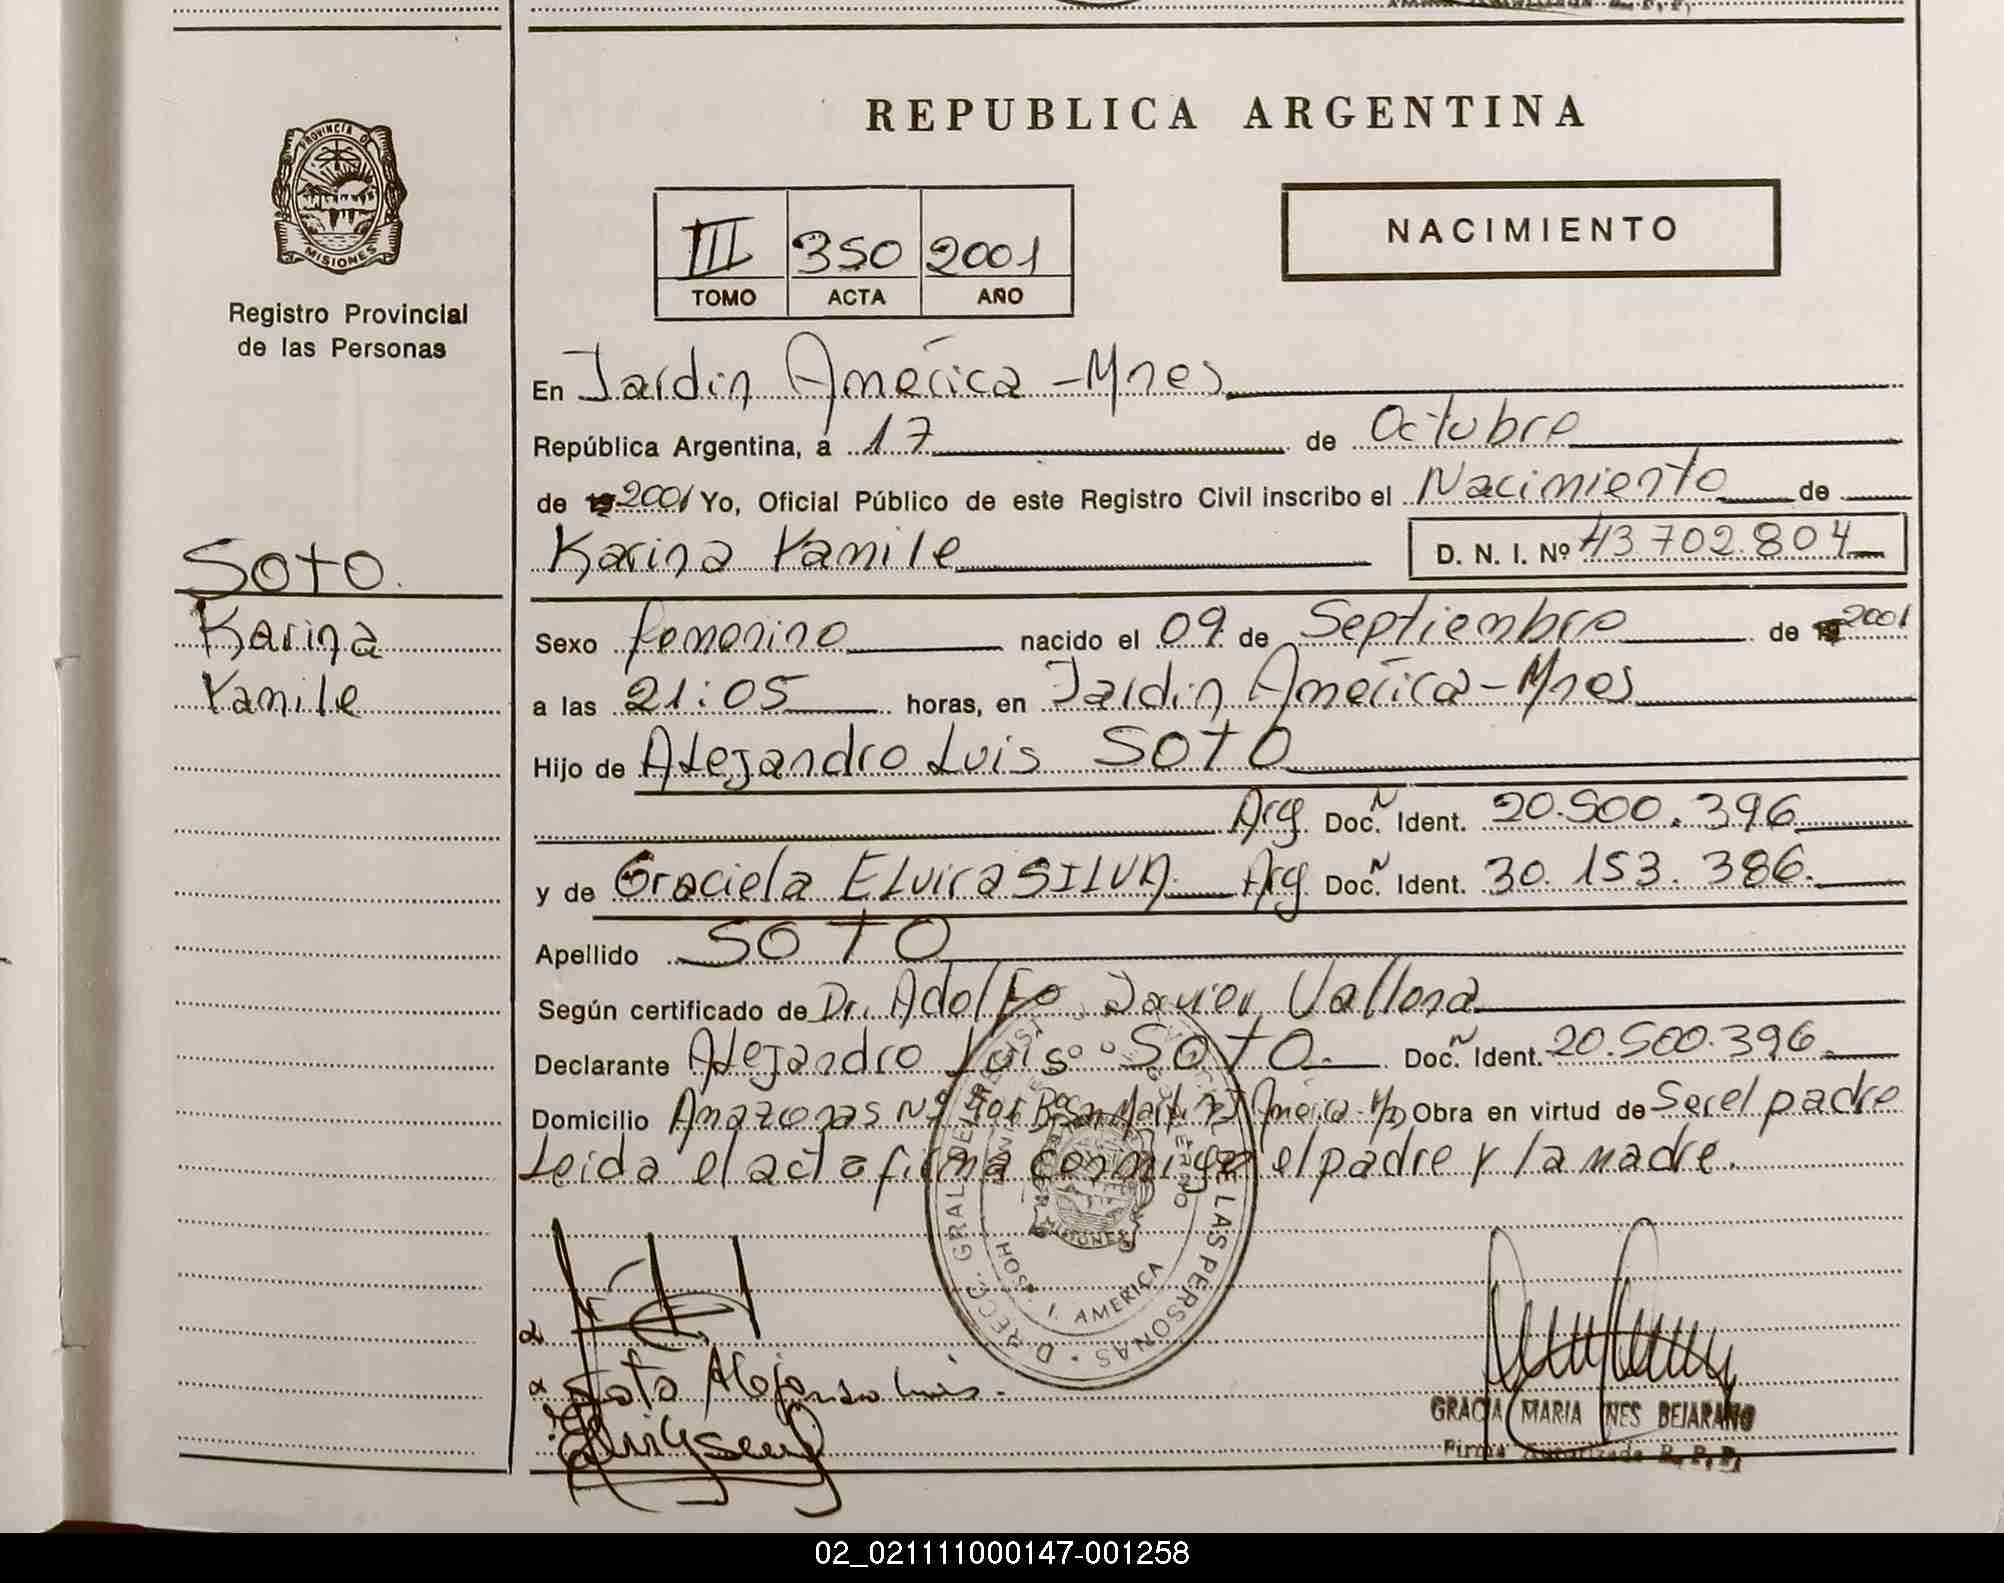 REPUBLICA ARGENTINA
PROVINCIA D
MISIONES
Registro Provincial
de las Personas
III 350 2001
TOMO ACTA AÑO
NACIMIENTO
En Jardin América - Mnes
República Argentina, a 17 de Octubre
de 19 2001 Yo, Oficial Público de este Registro Civil inscribo el Nacimiento de
Karina Yamile D. N. I. Nº 43.702.804
SOTO.
Karina
Yamile
Sexo femenino nacido el 09 de Septiembre de 19 2001
a las 21:05 horas, en Jardin América - Mnes
Hijo de Alejandro Luis SOTO
Arg Doc. Ñ Ident. 20.500.396
y de Graciela Elvira SILVA Arg Doc. Ñ Ident. 30.153.386.
Apellido SOTO
Según certificado de Dr. Adolfo Javier Vallona
Declarante Alejandro Luis SOTO. Doc. Ñ Ident. 20.500.396.
Domicilio Amazonas Nº Bº San Martin J. América - M Obra en virtud de Ser el padre
Leida el acta firma conmigo el padre y la madre.
GRAL DE LAS PERSONAS
HOSP. J. AMERICA
MISIONES
Soto Alejandro Luis.
GRACIA MARIA INES BEJARANO
Firma Autorizada R. P. P.
02_021111000147-001258